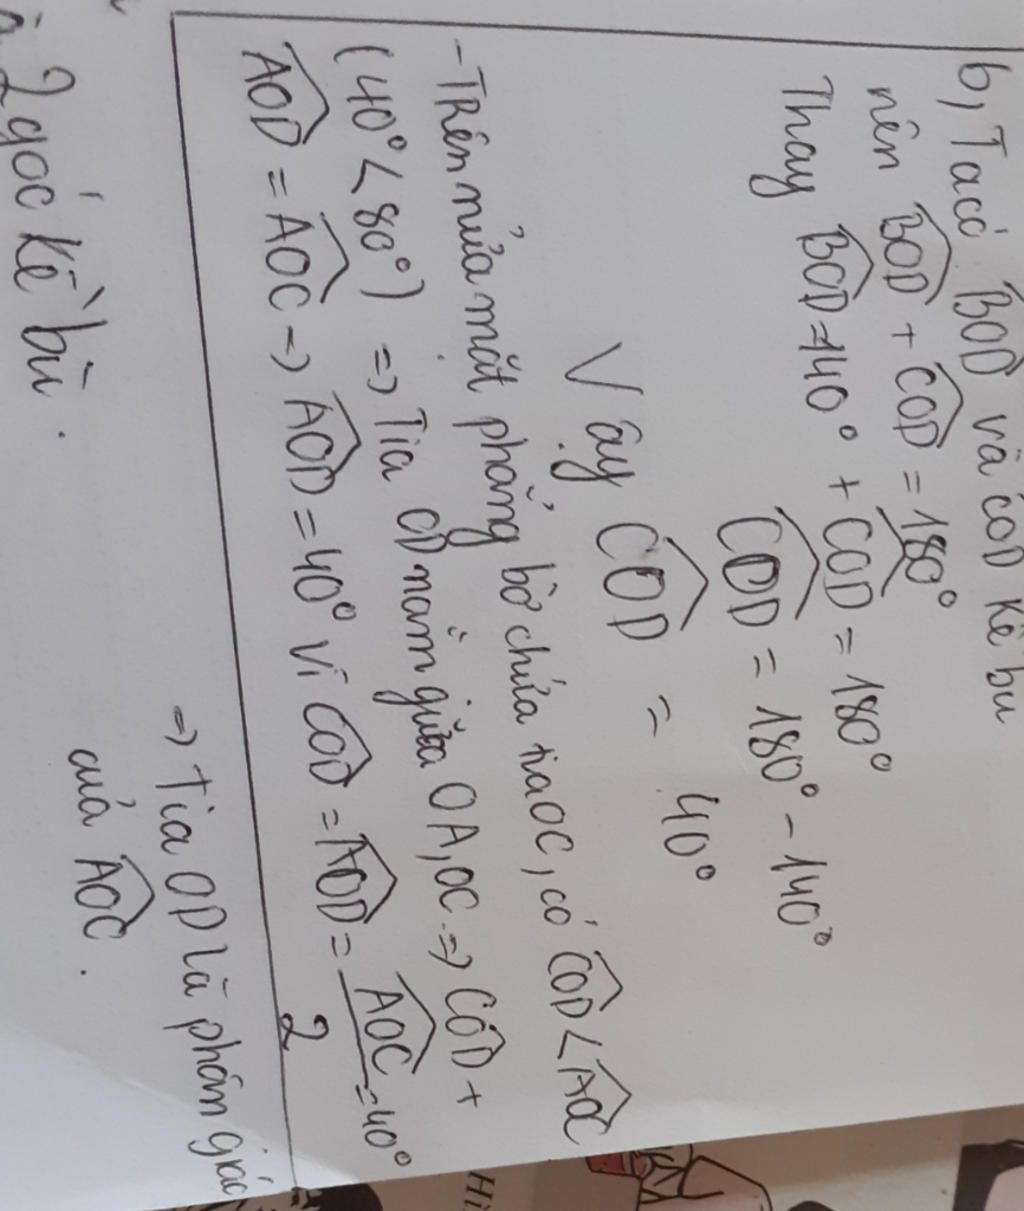 b, Ta có BOD và COD kề bù
nên BOD + COD = 180°
Thay BOD = 140° + COD = 180°
COD = 180° - 140°
Vậy COD = 40°
- Trên nửa mặt phẳng bờ chứa tia OC, có COD < AOC
(40° < 80°) => Tia OD nằm giữa OA, OC => COD +
AOD = AOC -> AOD = 40° vì COD = AOD = AOC/2 = 40°
=> Tia OD là phân giác
của AOC.
2 góc kề bù.